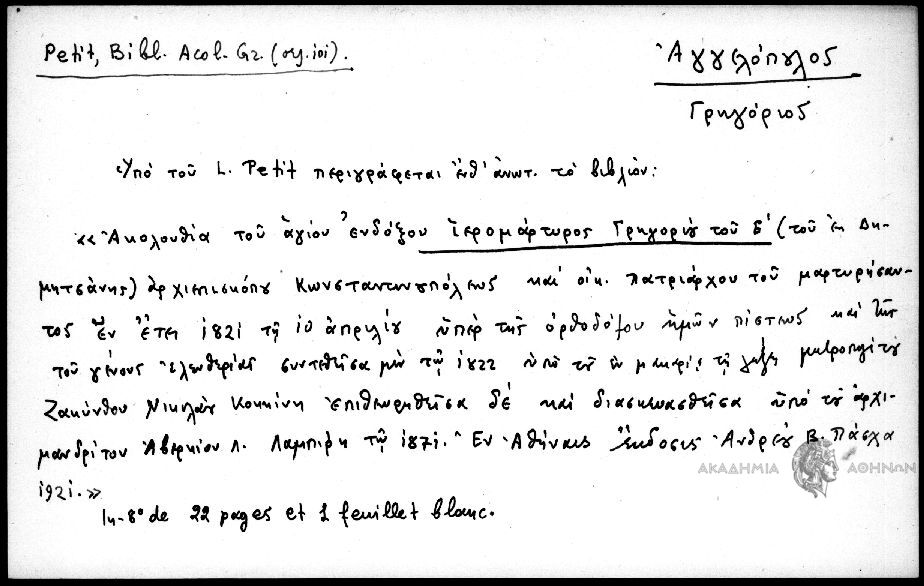 Petit, Bibl. Acol. Gr. (σγ. 101).
Ἀγγελόπουλος
Γρηγόριος
Ὑπό τοῦ L. Petit περιγράφεται ἐνθ' ἀνωτ. τό βιβλίον:
«Ἀκολουθία τοῦ ἁγίου ἐνδόξου Ἱερομάρτυρος Γρηγορίου τοῦ Ε΄ (τοῦ ἐκ Δη-
μητσάνης) ἀρχιεπισκόπου Κωνσταντινουπόλεως καί οἰκ. πατριάρχου τοῦ μαρτυρήσαν-
τος ἐν ἔτει 1821 τῇ 10 ἀπριλίου ὑπέρ τῆς ὀρθοδόξου ἡμῶν πίστεως καί τῆς
τοῦ γένους ἐλευθερίας συντεθεῖσα μέν τῷ 1822 ὑπό τοῦ ἐν μακαρίᾳ τῇ λήξει μητροπολίτου
Ζακύνθου Νικολάου Κοκκίνη ἐπιθεωρηθεῖσα δέ καί διασκευασθεῖσα ὑπό τοῦ ἀρχι-
μανδρίτου Ἀβερκίου Λ. Λαμπίρη τῷ 1871. Ἐν Ἀθήναις ἔκδοσις Ἀνδρέου Β. Πάσχα
1921.»
In-8° de 22 pages et 1 feuillet blanc.
ΑΚΑΔΗΜΙΑ ΑΘΗΝΩΝ